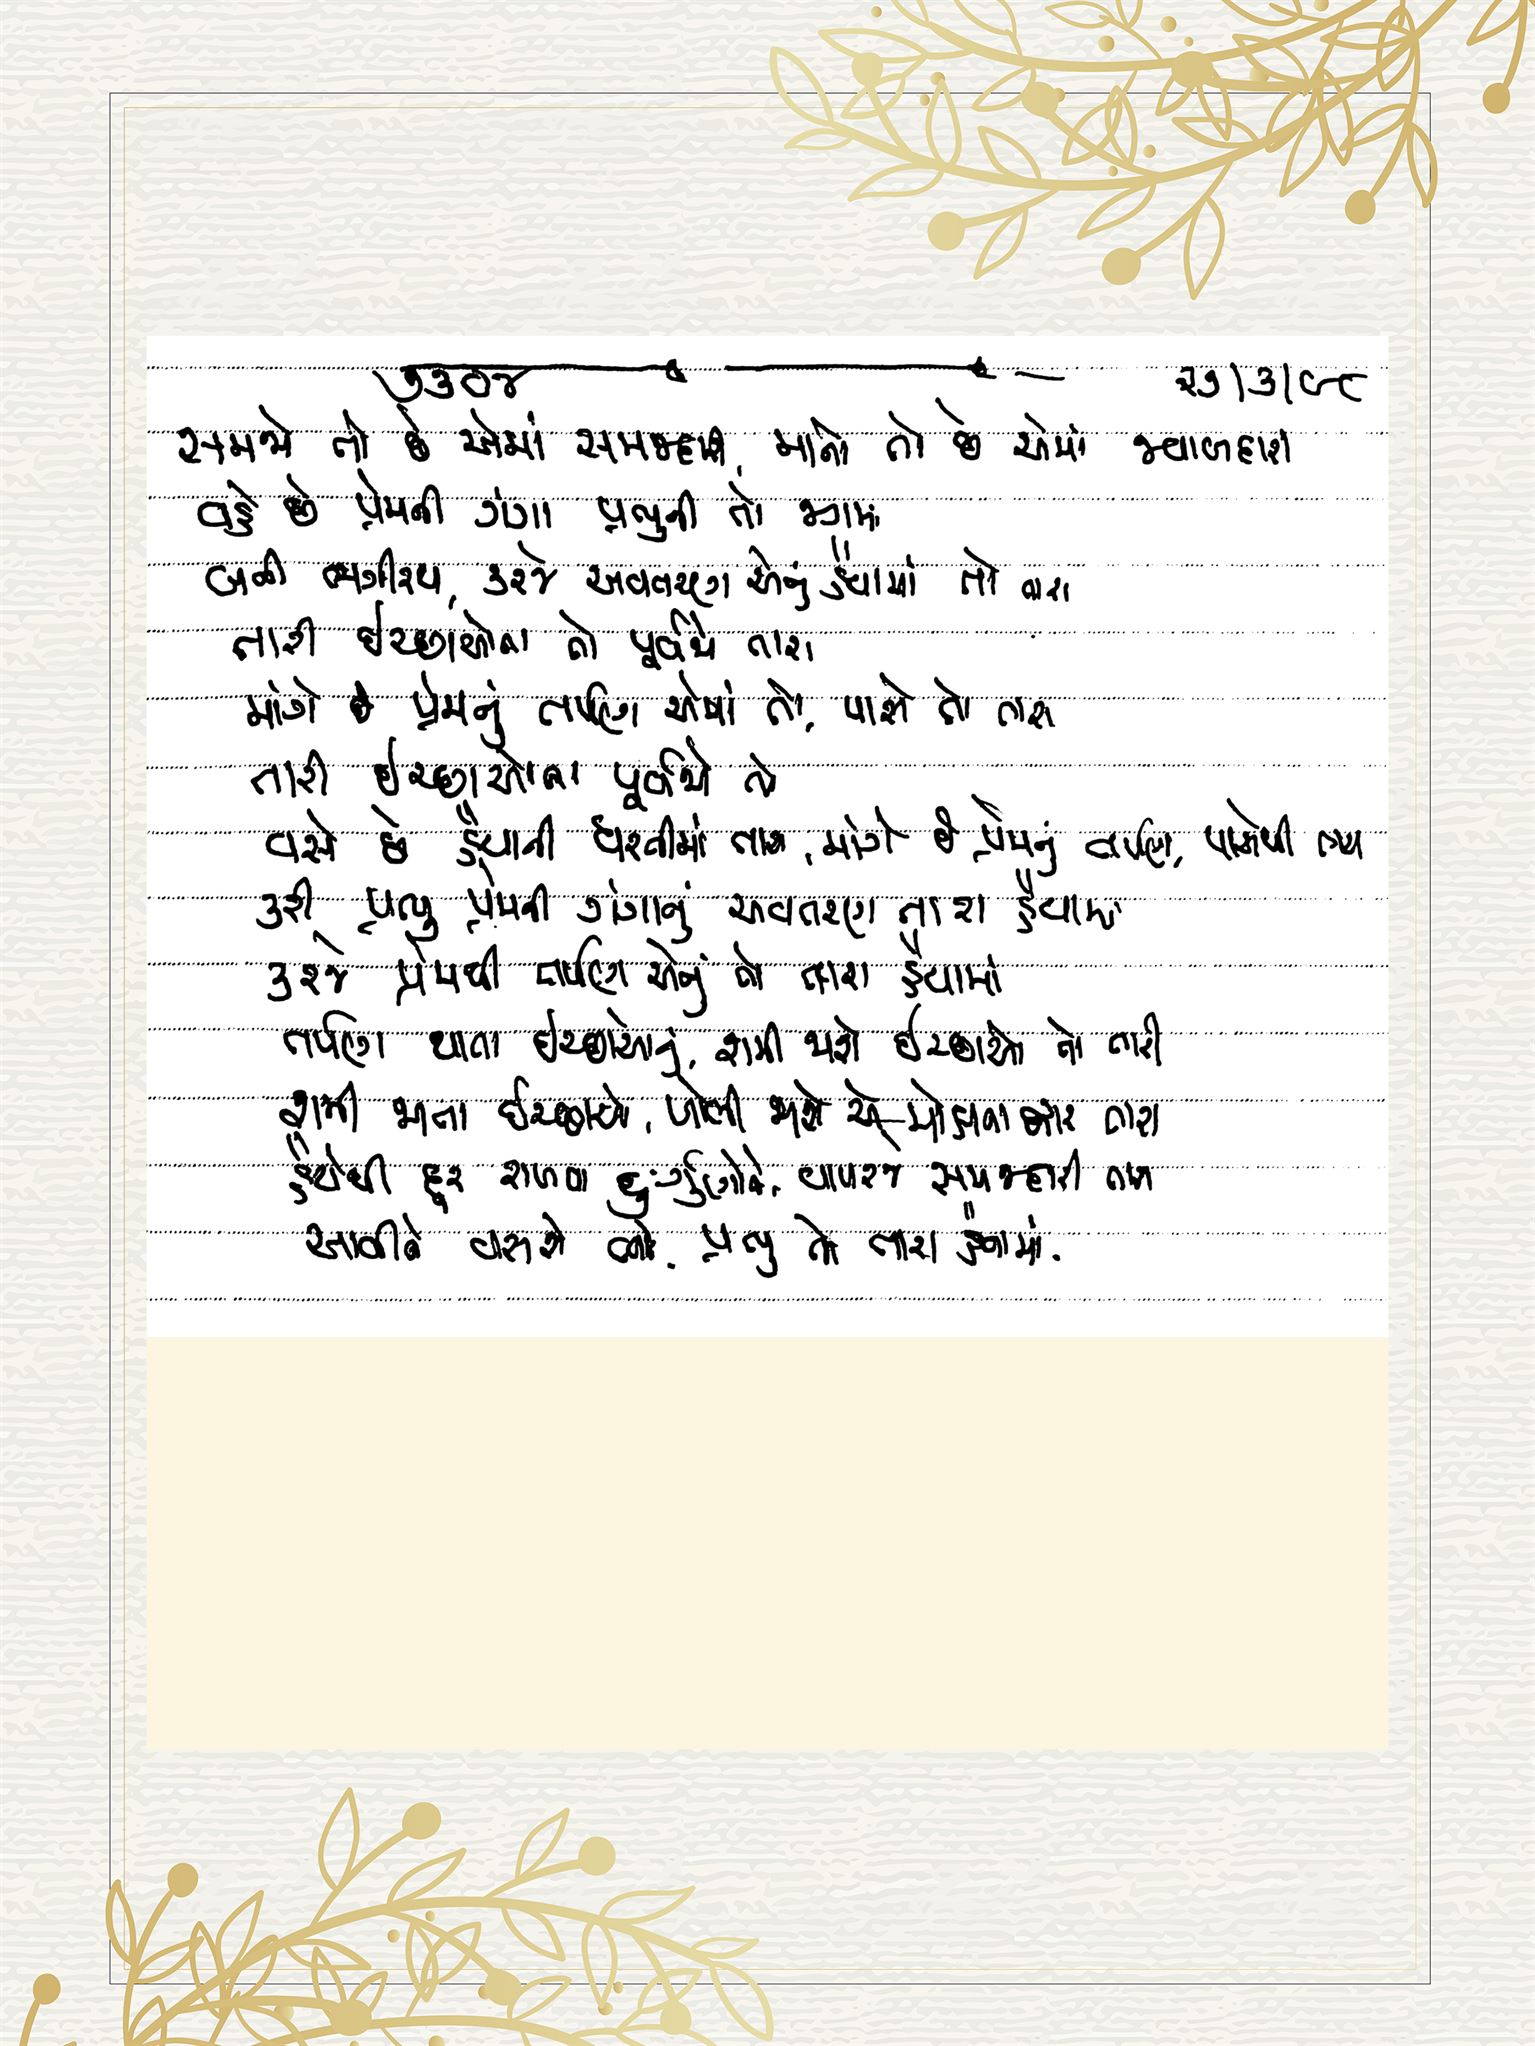 ૭૩૦૪ ૨૭/૩/૯૮
સમજો તો છે એમાં સમજદારી, માનો તો છે એમાં જવાબદારી
વહે છે પ્રેમની ગંગા પ્રભુની તો જગમાં
બની ભગીરથ, કરજે અવતરણ એનું હૈયામાં તો તારા
તારી ઇચ્છાઓના તો પૂર્વજો તારા
માંગે છે પ્રેમનું તર્પણ એમાં તો, પાસે તો તારા
તારી ઇચ્છાઓના પૂર્વજો તો
વસે છે હૈયાની ધરતીમાં તારા, માંગે છે પ્રેમનું તર્પણ, પાસેથી
કરી પ્રભુ પ્રેમની ગંગાનું અવતરણ તારા હૈયામાં
કરજે પ્રેમથી તર્પણ એનું તો તારા હૈયામાં
તર્પણ થાતા ઇચ્છાઓનું, શમી જાશે ઇચ્છાઓ તો તારી
શમી જાતા ઇચ્છાઓ, ખોલી જાશે એ મોક્ષના દ્વાર તારા
હૈયેથી દૂર રાખવા દુઃર્ગુણોને, વાપરજે સમજદારી
આવીને વસશે પ્રભુ તો તારા હૈયામાં.